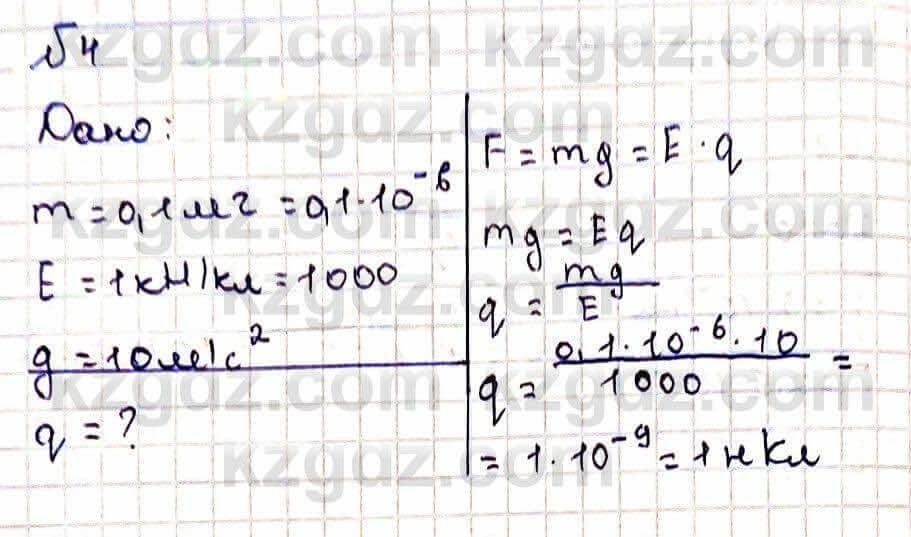 №4
Дано:
m = 0,1 мг = 0,1·10⁻⁶
E = 1 кН/кл = 1000
g = 10 м/с²
q = ?
F = mg = E·q
mg = Eq
q = mg/E
q = 0,1·10⁻⁶·10/1000 =
= 1·10⁻⁹ = 1 нКл
kzgdz.com